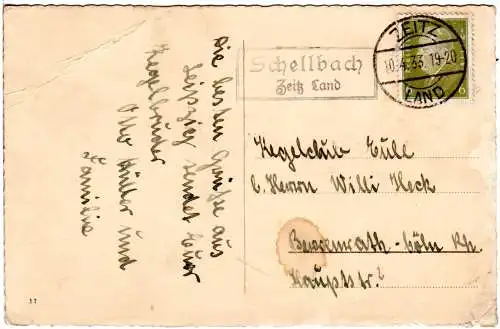 Die besten Grüße aus
Leipzig sendet Euer
Kegelbruder
Otto und
Familie
Schellbach
Zeitz Land
ZEITZ
10.4.33. 19-20
LAND
6
Kegelclub Eule
b. Herrn Willi Heck
Cöln Rh.
Hauptstr.